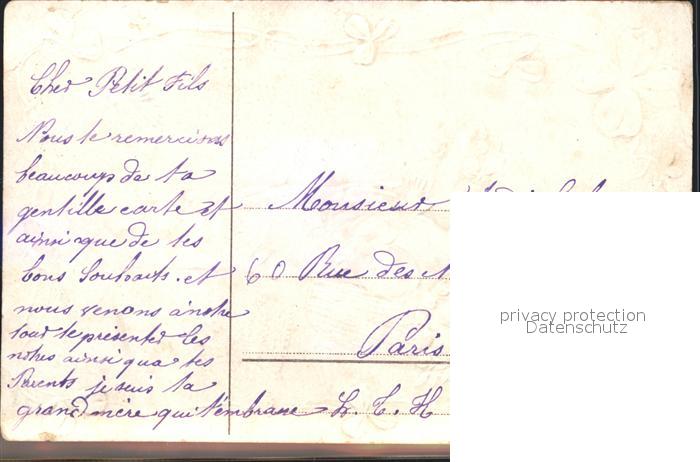 Cher Petit Fils
Nous te remercions
beaucoups de ta
gentille carte et
ainsi que de tes
bons Souhaits. et
nous venons à notre
tour te présenter les
notres ainsi qua tes
Parents je suis ta
grand mère qui t'embrasse L. T. H
Monsieur
60 Rue des
Paris
privacy protection
Datenschutz